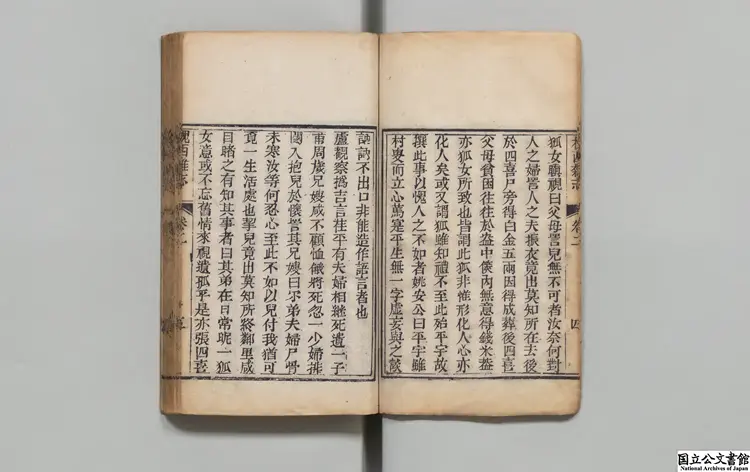 狐女瞋視曰父母詈兒無不可者汝奈何對
人之婦詈人之夫振衣竟出莫知所往去後
於四喜尸旁得白金五兩因得成葬後四喜
父母貧困往往於盎中篋內無意得錢米蓋
亦狐女所致也皆謂此狐非惟形化人心亦
化人矣或又謂狐雖知禮不至此殆平宇故
撰此事以愧人之不如者姚安公曰平宇雖
村叟而立心篤寔平生無一字虛妄與之談
槐西雜志 卷二 四
訥訥不出口非能造作語言者也
盧觀察撝吉言茌平有夫婦相繼死遺一子
甫周歲兄嫂咸不顧恤餓將死忽一少婦排
闥入抱兒於懷詈其兄嫂曰尔弟夫婦尸骨
未寒汝等何忍心至此不如以兒付我猶可
覓一生活處也挈兒竟出莫知所終鄰里咸
目睹之有知其事者曰其弟在日常昵一狐
女意或不忘舊情來視遺孤乎是亦張四喜
槐西雜志 卷二 五
国立公文書館
National Archives of Japan